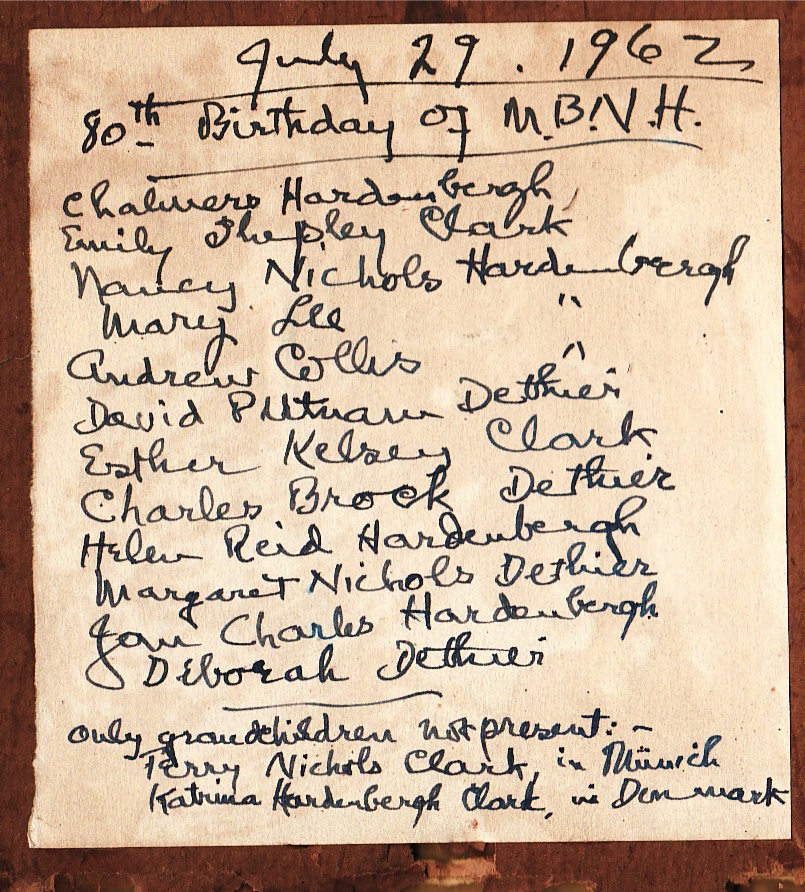 July 29. 1962
80th Birthday of M.B.N.H.
Chalmers Hardenbergh
Emily Shepley Clark
Nancy Nichols Hardenbergh
Mary Lee "
Andrew Collis "
David Putnam Dethier
Esther Kelsey Clark
Charles Brock Dethier
Helen Reid Hardenbergh
Margaret Nichols Dethier
Jan Charles Hardenbergh
Deborah Dethier
only grandchildren not present: -
Perry Nichols Clark, in Münich
Katrina Hardenbergh Clark, in Denmark